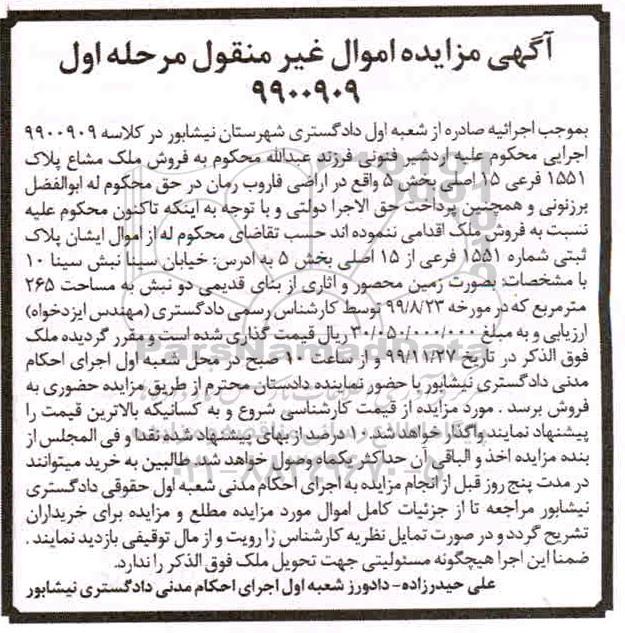 آگهی مزایده اموال غیر منقول مرحله اول
۹۹۰۰۹۰۹
بموجب اجرائیه صادره از شعبه اول دادگستری شهرستان نیشابور در کلاسه ۹۹۰۰۹۰۹
اجرایی محکوم علیه اردشیر فنونی فرزند عبدالله محکوم به فروش ملک مشاع پلاک
۱۵۵۱ فرعی ۱۵ اصلی بخش ۵ واقع در اراضی فاروب رمان در حق محکوم له ابوالفضل
برزنونی و همچنین پرداخت حق الاجرا دولتی و با توجه به اینکه تاکنون محکوم علیه
نسبت به فروش ملک اقدامی ننموده اند حسب تقاضای محکوم له از اموال ایشان پلاک
ثبتی شماره ۱۵۵۱ فرعی از ۱۵ اصلی بخش ۵ به ادرس: خیابان سینا نبش سینا ۱۰
با مشخصات: بصورت زمین محصور و اثاری از بنای قدیمی دو نبش به مساحت ۲۶۵
مترمربع که در مورخه ۹۹/۸/۲۳ توسط کارشناس رسمی دادگستری (مهندس ایزدخواه)
ارزیابی و به مبلغ ۳۰/۰۵۰/۰۰۰/۰۰۰ ریال قیمت گذاری شده است و مقرر گردیده ملک
فوق الذکر در تاریخ ۹۹/۱۱/۲۷ و از ساعت ۱۰ صبح در محل شعبه اول اجرای احکام
مدنی دادگستری نیشابور با حضور نماینده دادستان محترم از طریق مزایده حضوری به
فروش برسد . مورد مزایده از قیمت کارشناسی شروع و به کسانیکه بالاترین قیمت را
پیشنهاد نمایند واگذار خواهد شد ۱۰ درصد از بهای پیشنهاد شده نقدا و فی المجلس از
بنده مزایده اخذ و الباقی آن حداکثر یکماه وصول خواهد شد طالبین به خرید میتوانند
در مدت پنج روز قبل از انجام مزایده به اجرای احکام مدنی شعبه اول حقوقی دادگستری
نیشابور مراجعه تا از جزئیات کامل اموال مورد مزایده مطلع و مزایده برای خریداران
تشریح گردد و در صورت تمایل نظریه کارشناس را رویت و از مال توقیفی بازدید نمایند .
ضمنا این اجرا هیچگونه مسئولیتی جهت تحویل ملک فوق الذکر را ندارد.
علی حیدرزاده- دادورز شعبه اول اجرای احکام مدنی دادگستری نیشابور